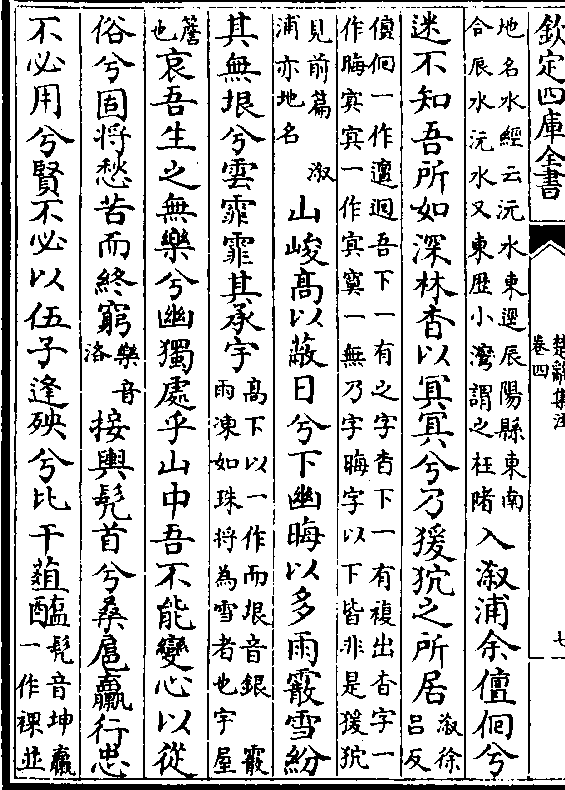 欽定四庫全書
楚辭集注
卷四
七
地名水經云沅水東逕辰陽縣東南
合辰水沅水又東歴小灣謂之枉陼
入溆浦余儃佪兮
迷不知吾所如深林杳以冥冥兮乃猨狖之所居
溆徐
吕反
儃佪一作邅迴吾下一有之字杳下一有複出杳字一
作晦㝠㝠一作㝠寞一無乃字晦字以下皆非是猨狖
見前篇溆
浦亦地名
山峻髙以蔽日兮下幽晦以多雨霰雪紛
其無垠兮雲霏霏其承宇
髙下以一作而垠音銀霰
雨凍如珠将為雪者也宇屋
簷
也
哀吾生之無樂兮幽獨處乎山中吾不能變心以從
俗兮固將愁苦而終窮
樂音
洛
接輿髠首兮桑扈臝行忠
不必用兮賢不必以伍子逢殃兮比干葅醢
髠音坤臝
一作裸並